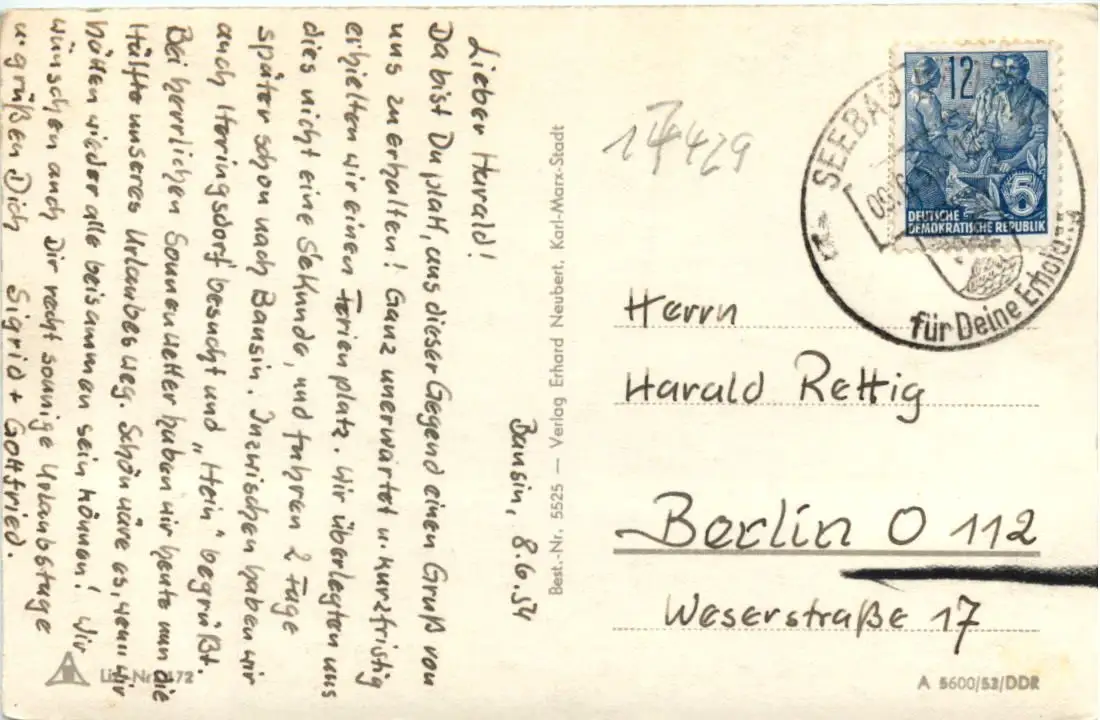 Bansin, 8.6.54
Lieber Harald!
Da bist Du platt, aus dieser Gegend einen Gruß von
uns zu erhalten! Ganz unerwartet u. kurzfristig
erhielten wir einen Ferienplatz. Wir überlegten uns
dies nicht eine Sekunde, und fuhren 2 Tage
später schon nach Bansin. Inzwischen haben wir
auch Heringsdorf besucht und „Hein" begrüßt.
Bei herrlichen Sonnenwetter haben wir heute nun die
Hälfte unseres Urlaubes weg. Schön wäre es, wenn wir
hätten wieder alle beisammen sein können! Wir
wünschen auch Dir recht sonnige Urlaubstage
u. grüßen Dich Sigrid + Gottfried.
Best.-Nr. 5525 — Verlag Erhard Neubert, Karl-Marx-Stadt
12
DEUTSCHE
DEMOKRATISCHE REPUBLIK
5
SEEBAD
für Deine Erholung
Herrn
Harald Rettig
Berlin O 112
Weserstraße 17
A 5600/53/DDR